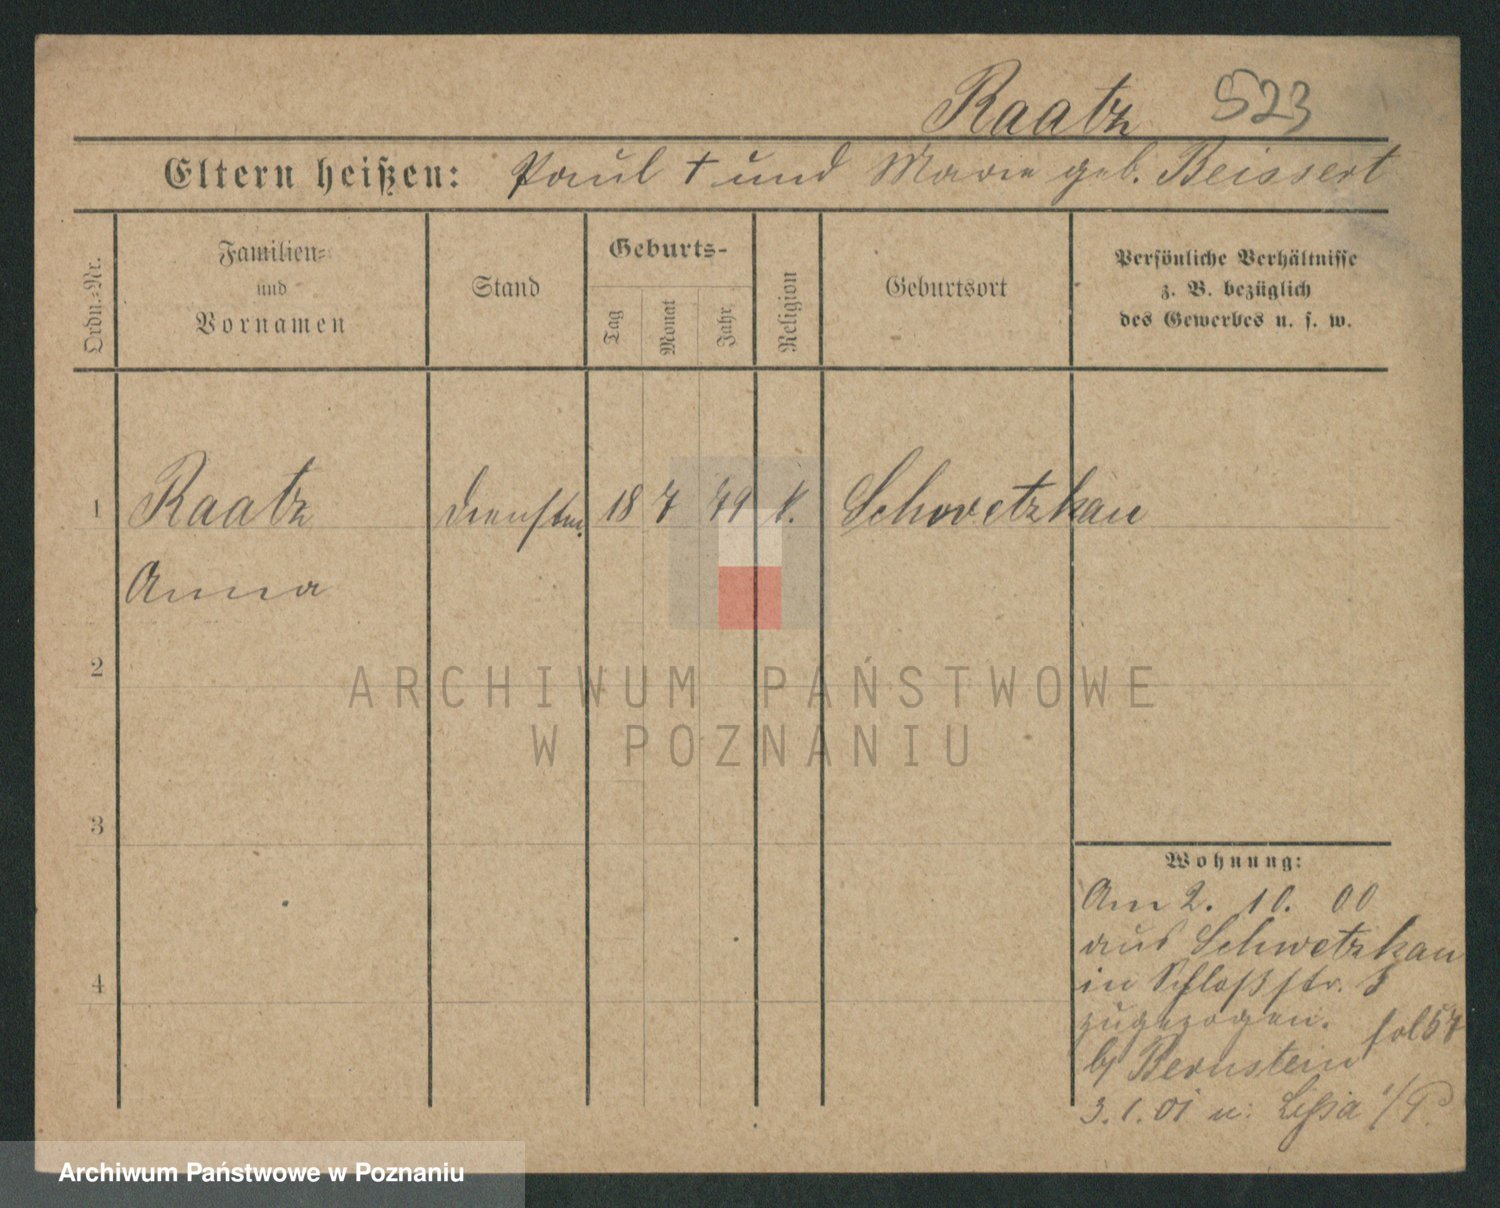 Raatz 523
Eltern heißen: Paul † und Marie geb. Beissert
Ordn.-Nr.
Familien-
und
Vornamen
Stand
Geburts-
Tag
Monat
Jahr
Religion
Geburtsort
Persönliche Verhältnisse
z. B. bezüglich
des Gewerbes u. s. w.
1 Raatz Dienstm. 18 7 79 k. Schwetzkau
Anna
2
ARCHIWUM PAŃSTWOWE
W POZNANIU
3
4
Wohnung:
Am 2. 10. 00
aus Schwetzkau
in Schloßstr. 8
zugezogen.
fol 57
b/ Bernstein
3.1.01 n. Lissa i/P.
Archiwum Państwowe w Poznaniu